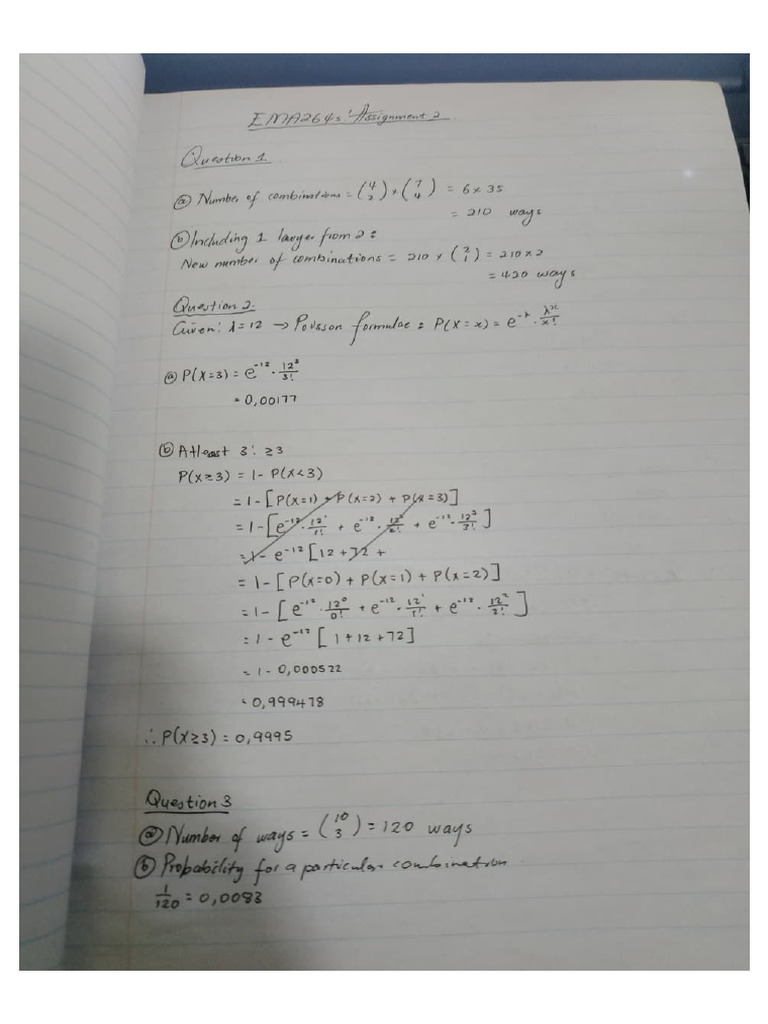 EMA264s Assignment 2
Question 1
(a) Number of combinations = (4 2) × (7 4) = 6 × 35
= 210 ways
(b) Including 1 lawyer from 2 :
New number of combinations = 210 × (2 1) = 210 × 2
= 420 ways
Question 2.
Given: λ = 12 → Poisson formulae : P(X = x) = e^-λ · λ^x/x!
(a) P(X=3) = e^-12 · 12^3/3!
= 0,00177
(b) Atleast 3: ≥3
P(X≥3) = 1 - P(X<3)
= 1 - [P(X=1) + P(X=2) + P(X=3)]
= 1 - [e^-12 · 12^1/1! + e^-12 · 12^2/2! + e^-12 · 12^3/3!]
= 1 - e^-12 [12 + 72 +
= 1 - [P(X=0) + P(X=1) + P(X=2)]
= 1 - [e^-12 · 12^0/0! + e^-12 · 12^1/1! + e^-12 · 12^2/2!]
= 1 - e^-12 [1 + 12 + 72]
= 1 - 0,000522
= 0,999478
∴ P(X≥3) = 0,9995
Question 3
(a) Number of ways = (10 3) = 120 ways
(b) Probability for a particular combination
1/120 = 0,0083